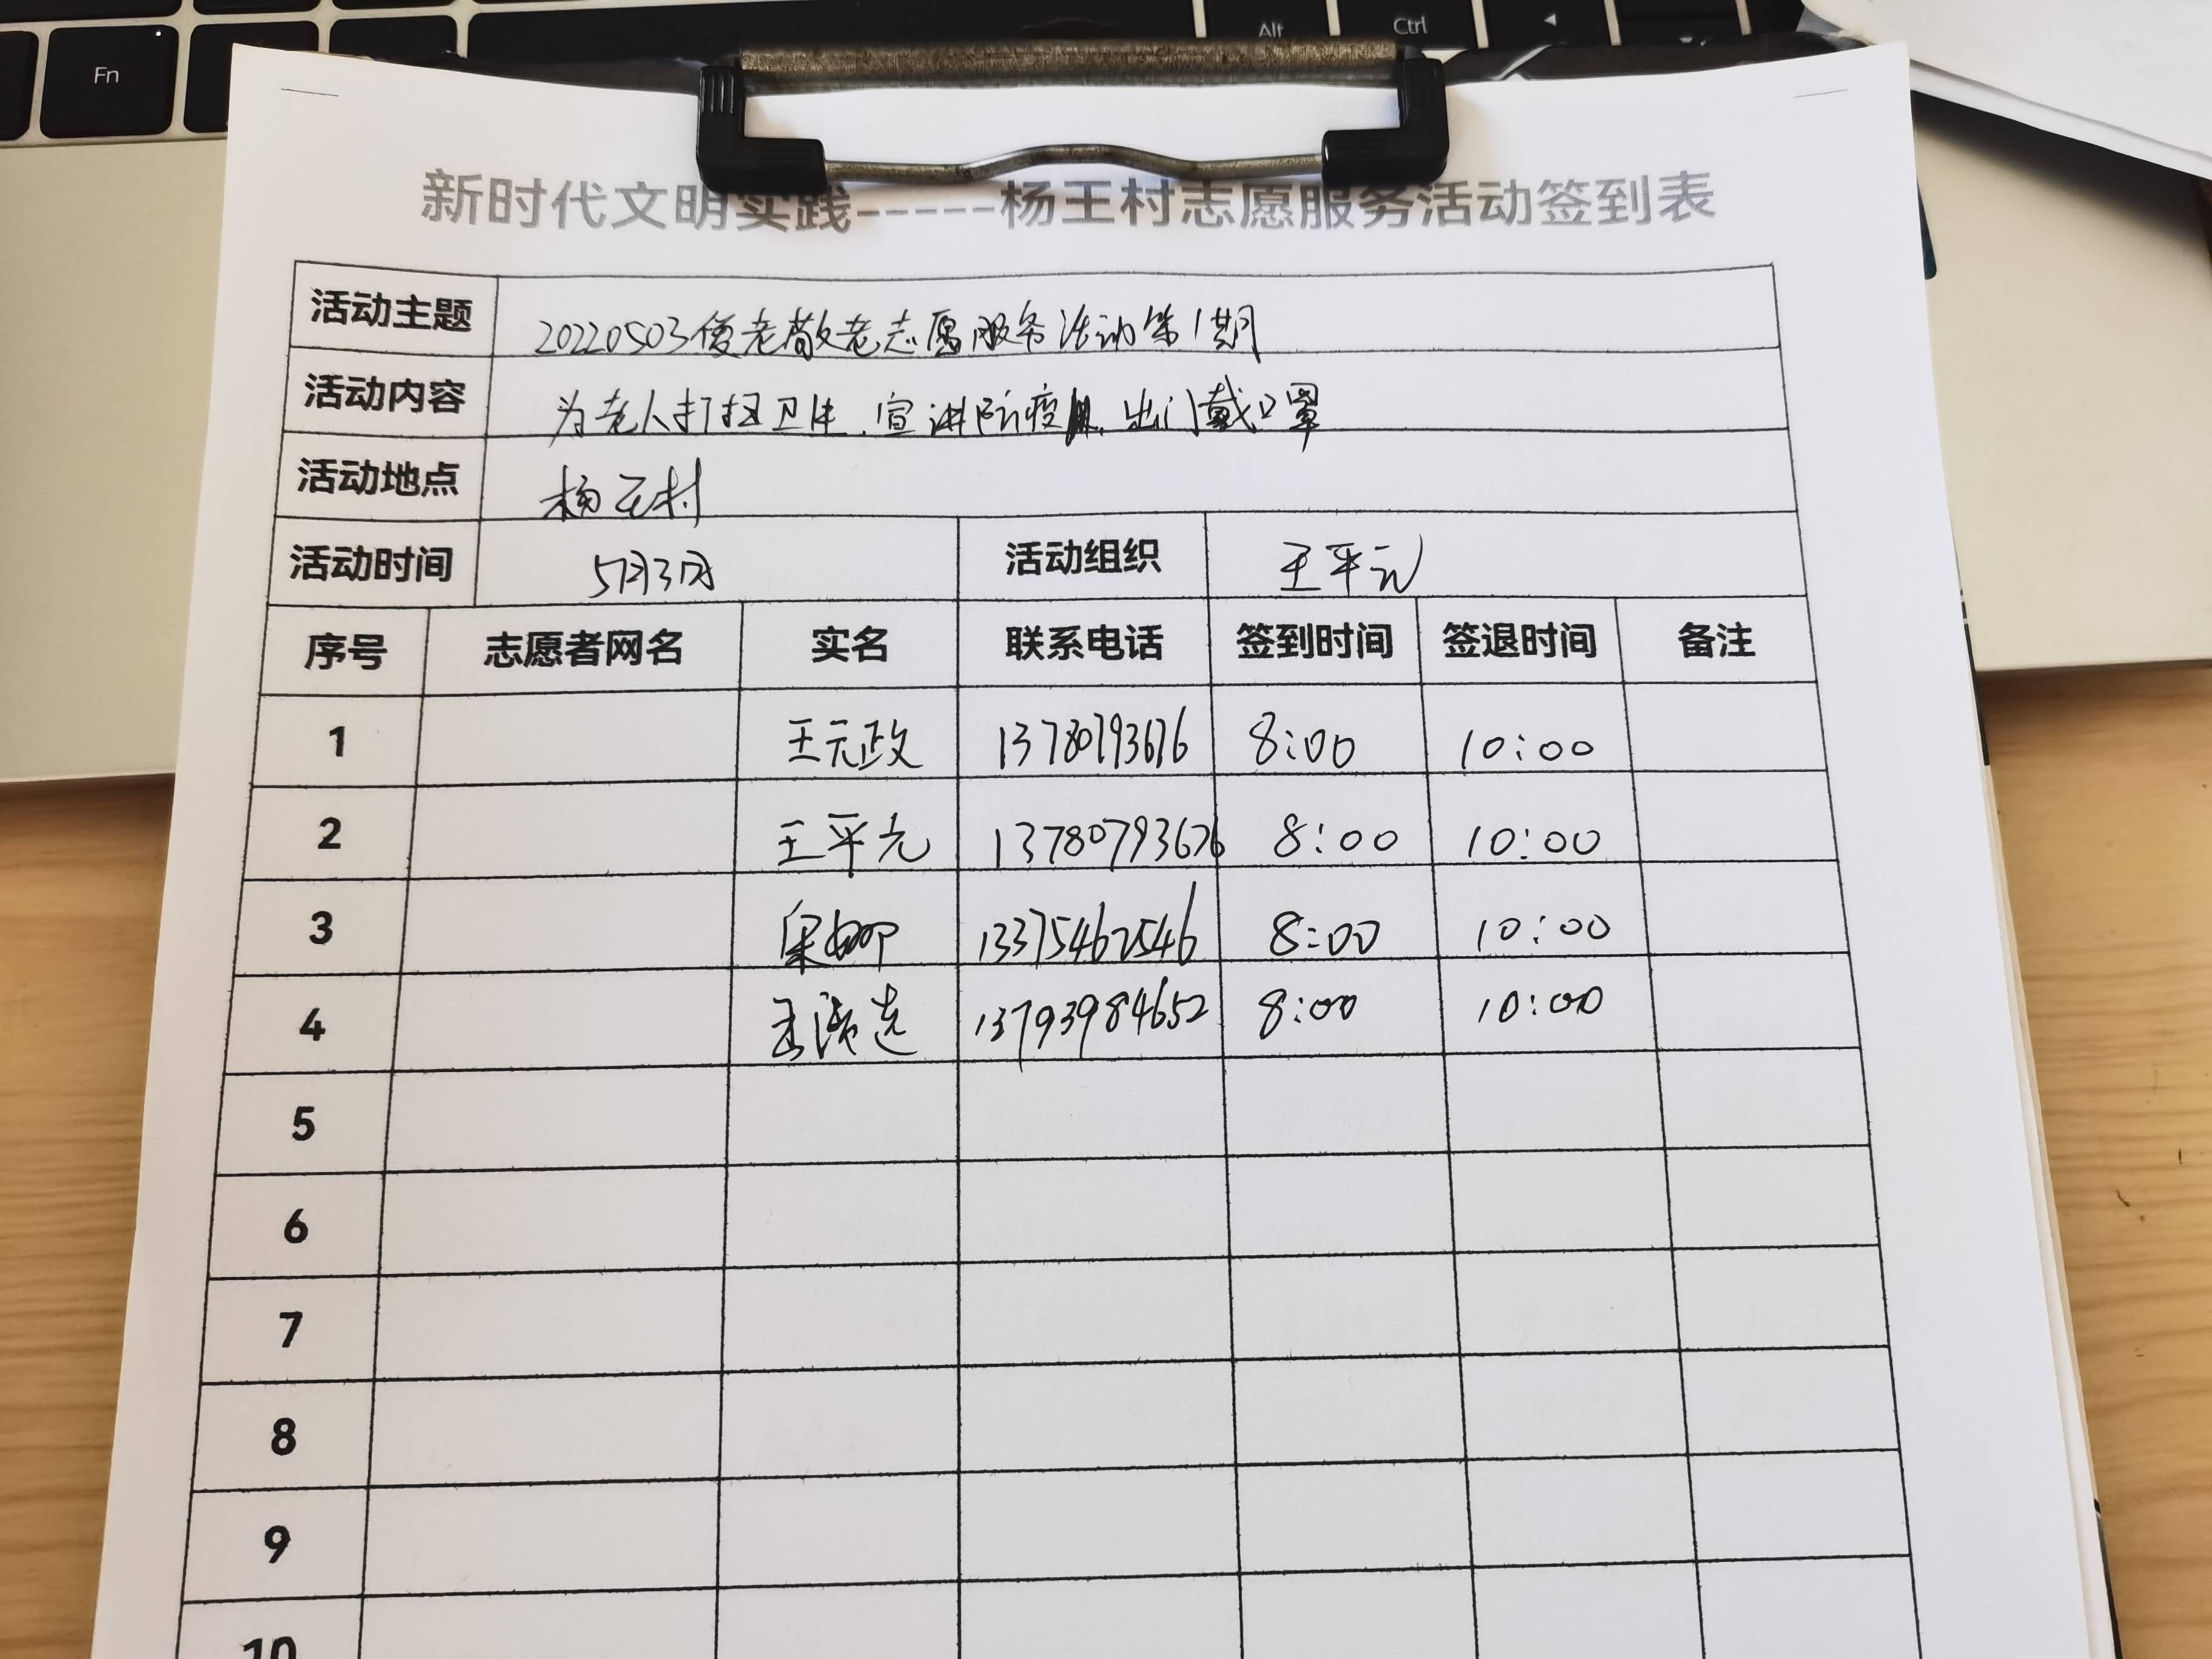 Fn
Alt
Ctrl
新时代文明实践-----杨王村志愿服务活动签到表
活动主题 20220503爱老敬老志愿服务活动第1期
活动内容 为老人打扫卫生、宣讲防疫、出门戴口罩
活动地点 杨王村
活动时间 5月3日 活动组织 王平元
序号 志愿者网名 实名 联系电话 签到时间 签退时间 备注
1 王元政 13780793676 8:00 10:00
2 王平元 13780793676 8:00 10:00
3 13375462546 8:00 10:00
4 13793984652 8:00 10:00
5
6
7
8
9
10